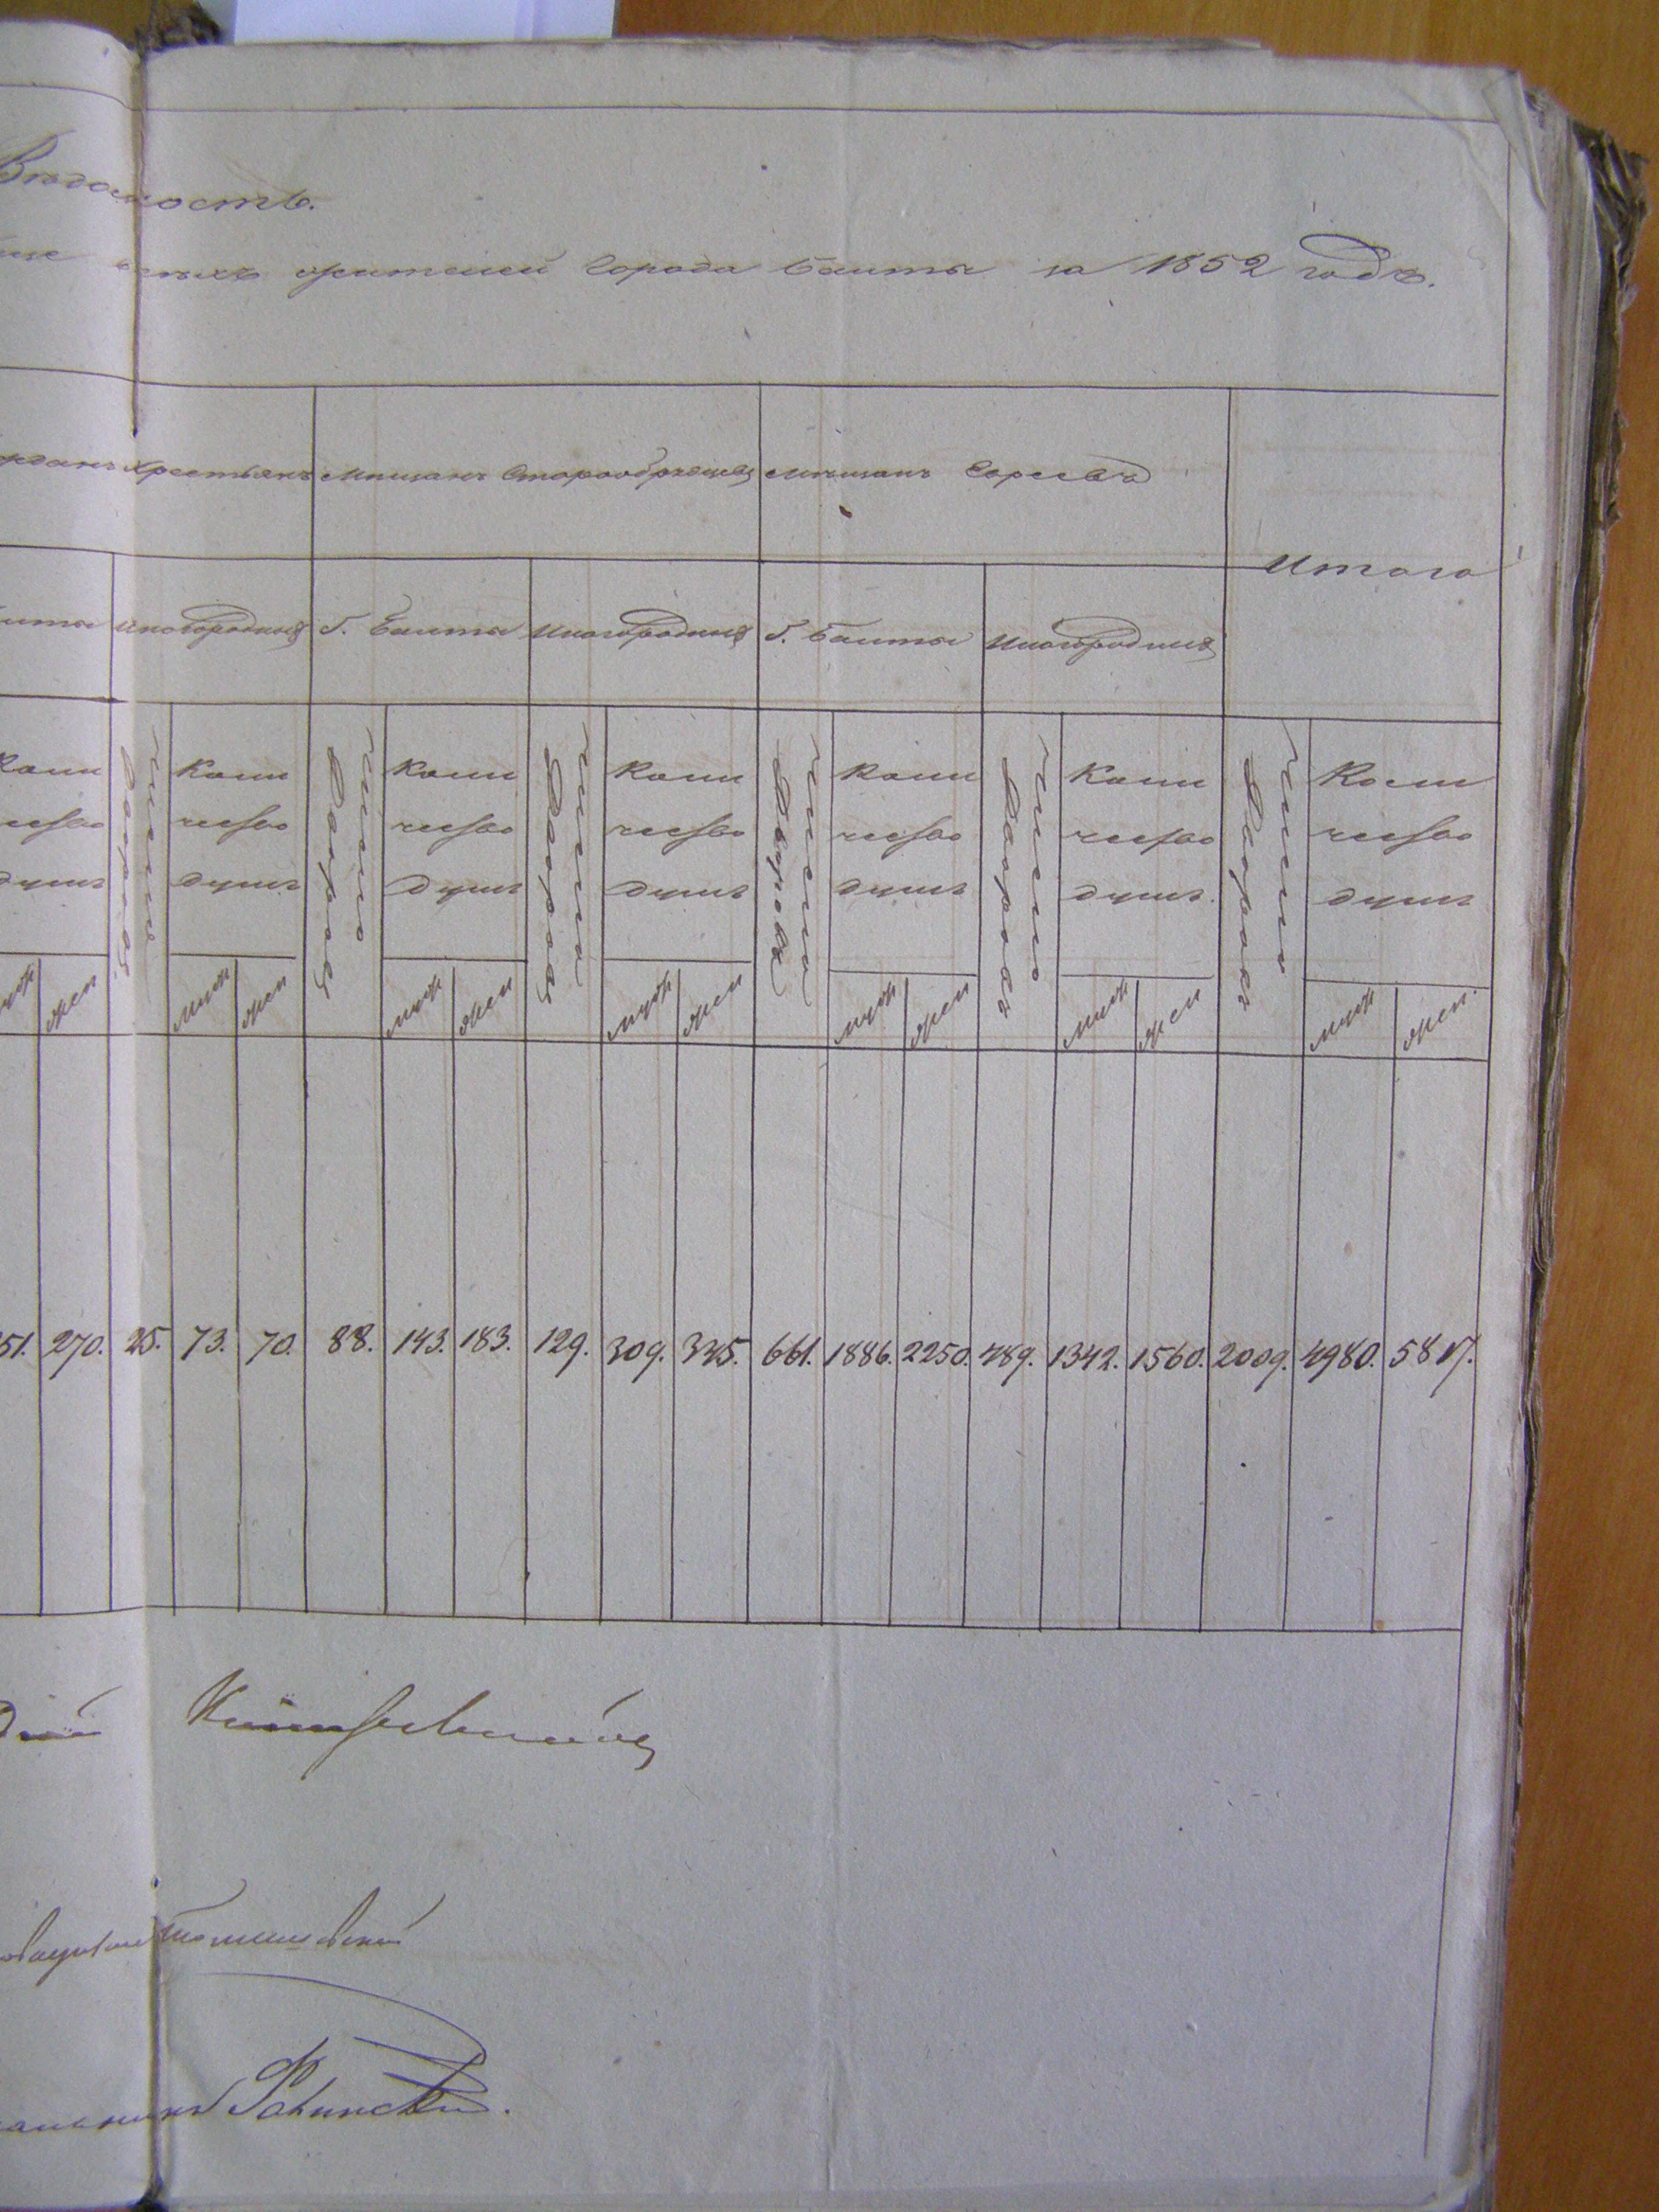 Вѣдомость.
всѣхъ жителей Города Балты за 1852 годъ.
крестьянъ Мѣщанъ Старообрядцевъ Мѣщанъ Евреевъ
Итого
Балты Иногородныя Г. Балты Иногородныя Г. Балты Иногородныя
Коли Число Дворовъ Коли Число Дворовъ Коли Число Дворовъ Коли Число Дворовъ Коли Число Дворовъ Коли Число Дворовъ Коли
чество чество чество чество чество чество чество
душъ душъ душъ душъ душъ душъ душъ
муж жен муж жен муж жен муж жен муж жен муж жен муж жен.
51. 270. 25. 73. 70. 88. 143. 183. 129. 309. 345. 661. 1886. 2250. 489. 1342. 1560. 2009. 4980. 5817.